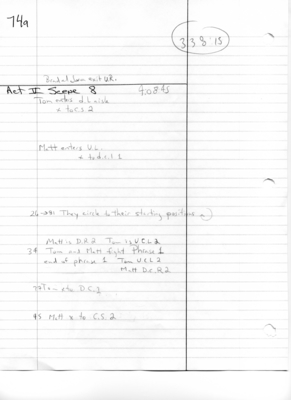 74a
3:38:15
Brad and Jenn exit U.R.
Act II Scene 8
Tom enters
x to C.S 2
Matt enters U.L.
x to D.C.L 1
They x to their starting positions
Matt is D.R 2 Tom is U.C.L 2
Tom and Matt fight Phrase 1
end of phrase 1 Tom U.C.L 2
Matt D.C.R 2
Tom x to D.C.
Matt x to C.S. 2